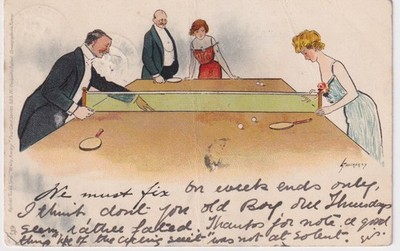 We must fix on weeks ends only,
I think don't you old Boy our Thursdays
seem rather fated. Thanks for note a good
thing of the suit was not at Solent.